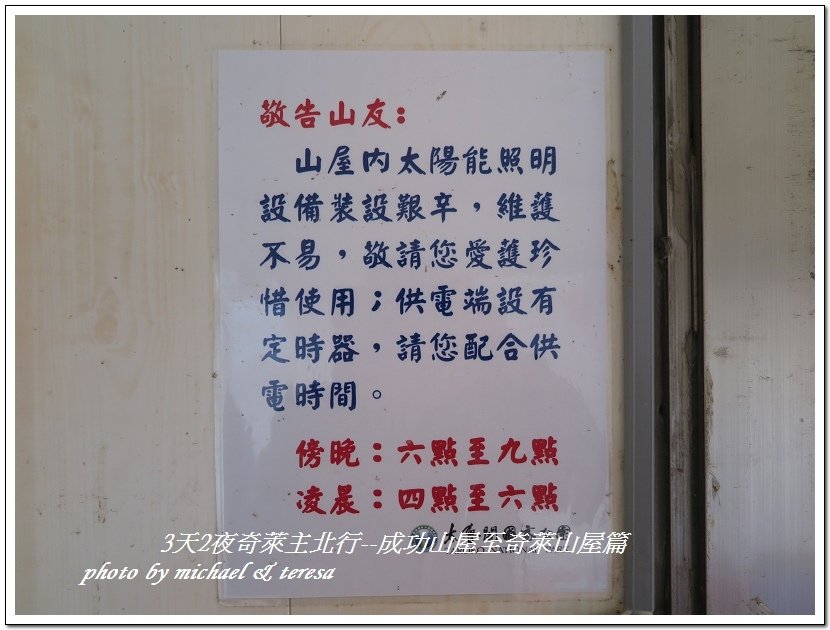 敬告山友:
山屋內太陽能照明
設備裝設艱辛，維護
不易，敬請您愛護珍
惜使用；供電端設有
定時器，請您配合供
電時間。
傍晚：六點至九點
凌晨：四點至六點
3天2夜奇萊主北行--成功山屋至奇萊山屋篇
photo by michael & teresa